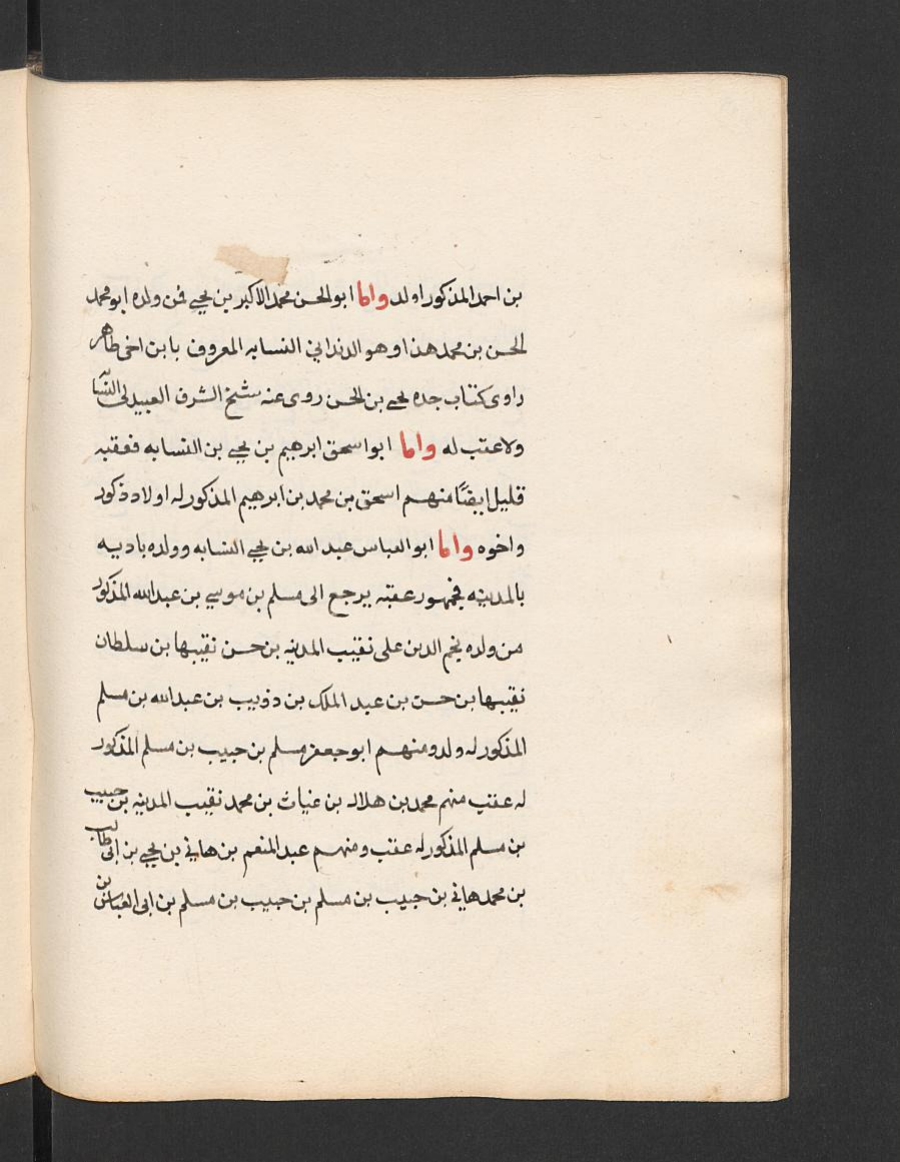 بن احمد المذكور اولد واما ابو الحسن محمد الاكبر بن يحيى فمن ولده ابو محمد
الحسن بن محمد هذا وهو الدندانى النسابه المعروف بابن اخى طاهر
راوى كتاب جده يحيى بن الحسن روى عنه شيخ الشرف العبيدلى النسا
ولا عقب له واما ابو اسحق ابرهيم بن يحيى بن النسابه فعقبه
قليل ايضًا منهم اسحق بن محمد بن ابرهيم المذكور له اولاد ذكور
واخوه واما ابو العباس عبد الله بن يحيى النسابه وولده باديه
بالمدينه فجمهور عقبه يرجع الى مسلم بن موسى بن عبد الله المذكور
من ولده نجم الدين على نقيب المدينه بن حسن نقيبها بن سلطان
نقيبها بن حسن بن عبد الملك بن ذويب بن عبد الله بن مسلم
المذكور له ولد ومنهم ابو جعفر مسلم بن حبيب بن مسلم المذكور
له عقب منهم محمد بن هلال بن غياث بن محمد نقيب المدينه بن حبيب
بن مسلم المذكور له عقب ومنهم عبد المنعم بن هانى بن يحيى بن ابى طالب
بن محمد هانى بن حبيب بن مسلم بن حبيب بن مسلم بن ابى العباس بن